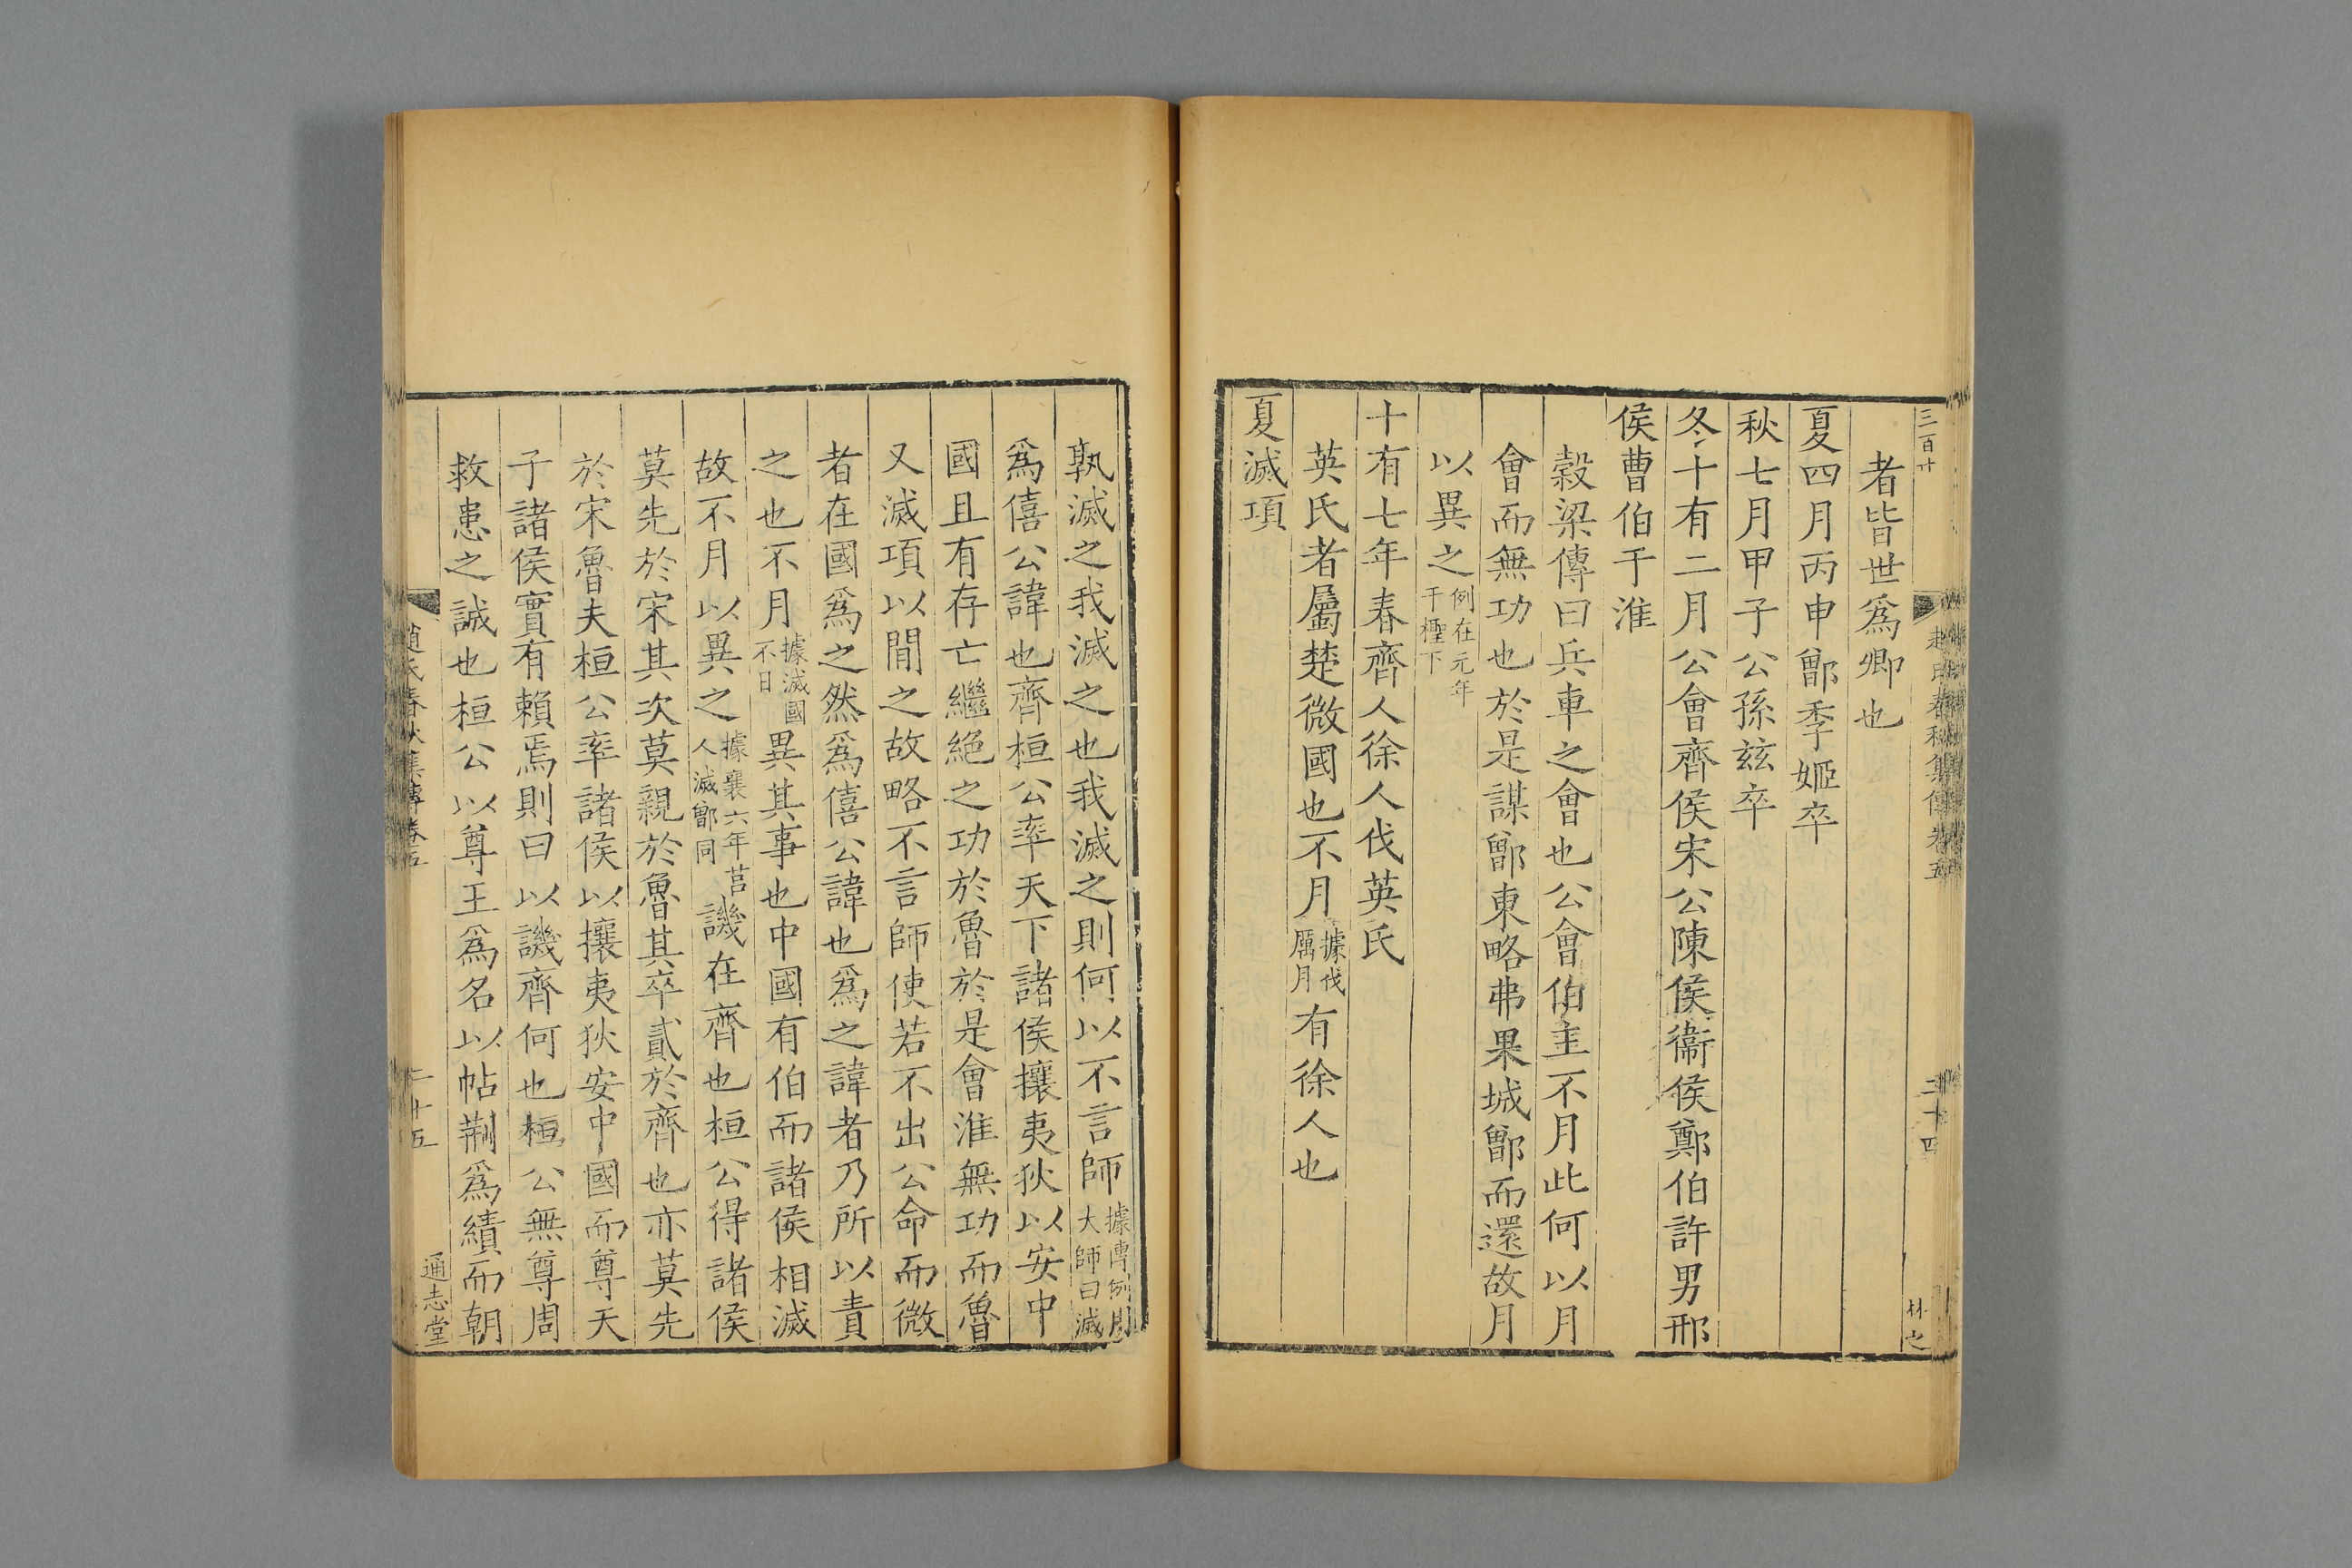 三百廿
趙氏春秋集傳卷五
二十四
林之
者皆世爲卿也
夏四月丙申鄫季姬卒
秋七月甲子公孫玆卒
冬十有二月公會齊侯宋公陳侯衞侯鄭伯許男邢
侯曹伯于淮
榖梁傳曰兵車之會也公會伯主不月此何以月
會而無功也於是謀鄫東略弗果城鄫而還故月
以異之例在元年于檉下
十有七年春齊人徐人伐英氏
英氏者屬楚微國也不月據伐厲月有徐人也
夏滅項
孰滅之我滅之也我滅之則何以不言師據傳例用大師曰滅
爲僖公諱也齊桓公率天下諸侯攘夷狄以安中
國且有存亡繼絕之功於魯於是會淮無功而魯
又滅項以閒之故略不言師使若不出公命而微
者在國爲之然爲僖公諱也爲之諱者乃所以責
之也不月據滅國不日異其事也中國有伯而諸侯相滅
故不月以異之據襄六年莒人滅鄫同譏在齊也桓公得諸侯
莫先於宋其次莫親於魯其卒貳於齊也亦莫先
於宋魯夫桓公率諸侯以攘夷狄安中國而尊天
子諸侯實有賴焉則曰以譏齊何也桓公無尊周
救患之誠也桓公以尊王爲名以帖荆爲績而朝
趙氏春秋集傳卷五
二十五
通志堂